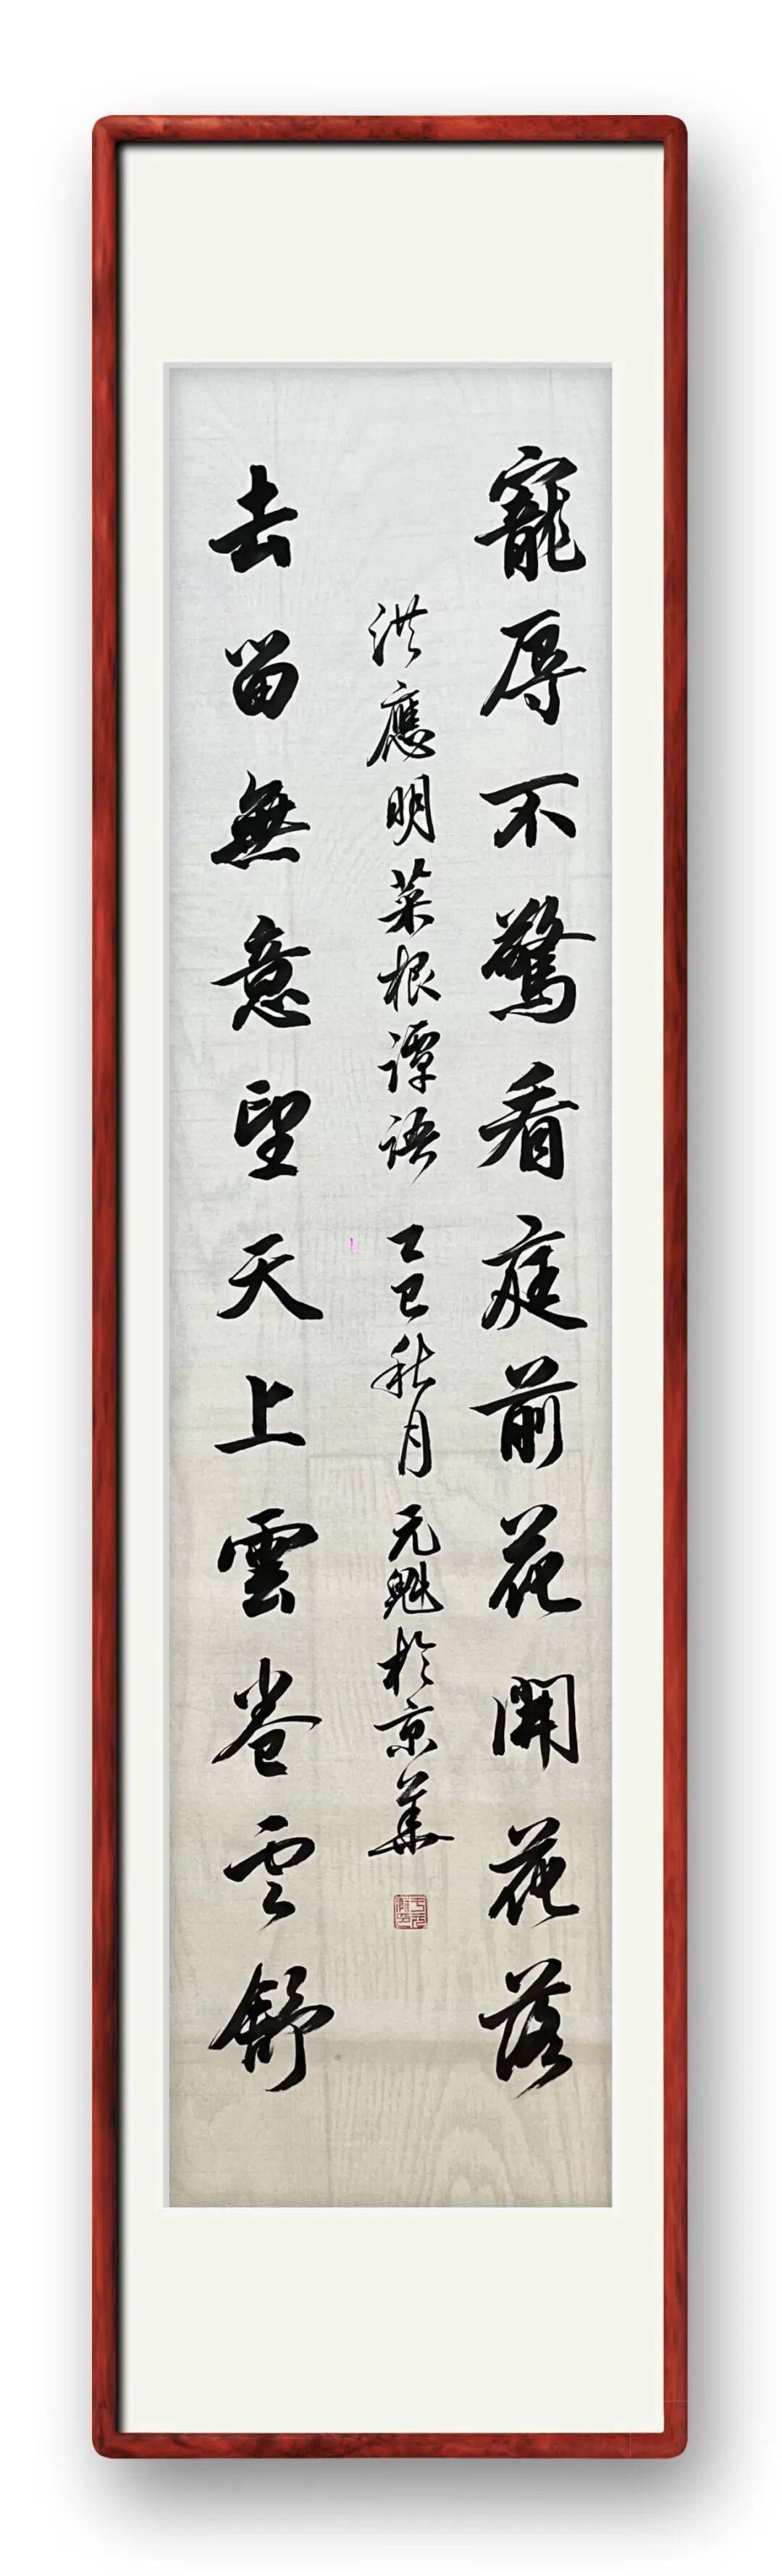 寵辱不驚看庭前花開花落
洪應明菜根譚語 乙巳秋月 元魁於京華
去留無意望天上雲卷雲舒